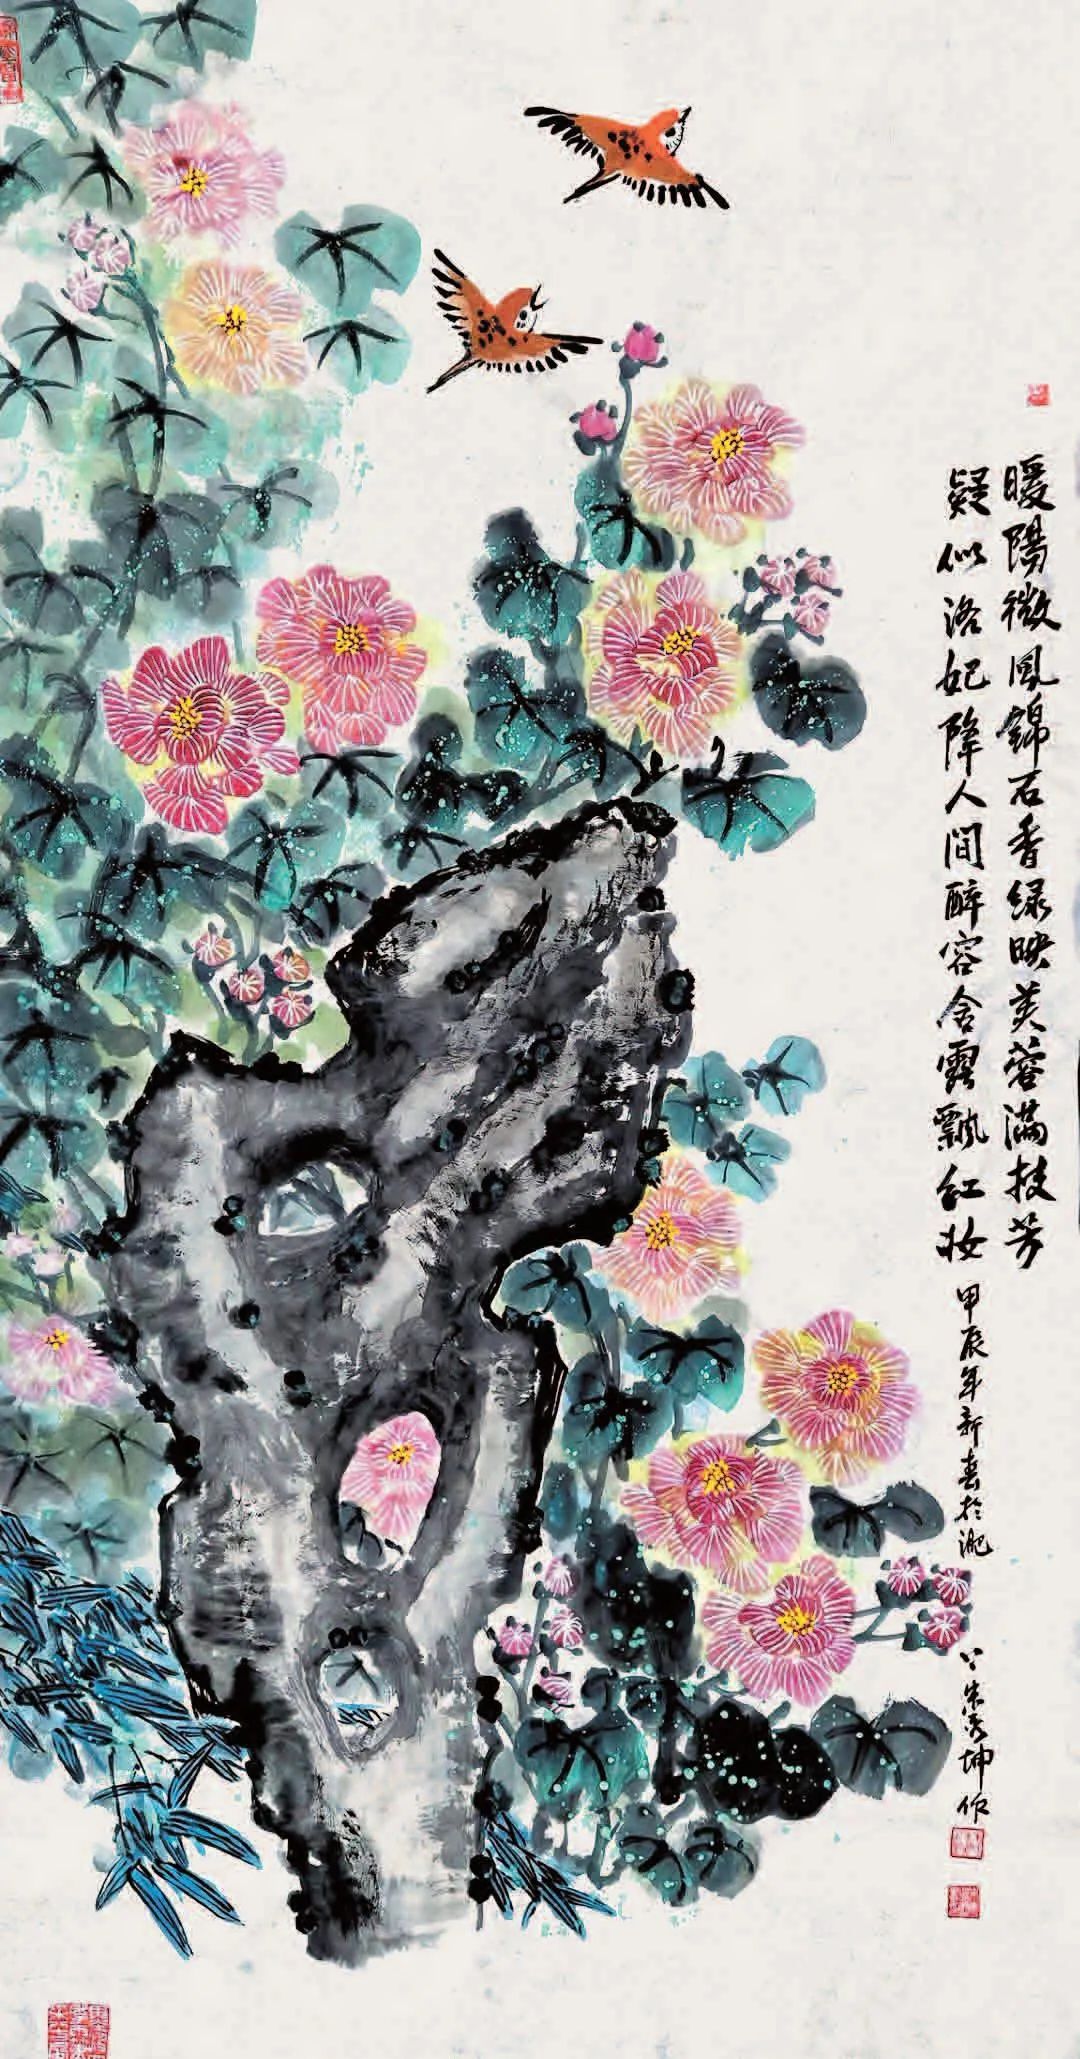 暖陽微風錦石香绿映芙蓉滿枝芳
疑似洛妃降人间醉容含露飄红妆
甲辰年新春於淝
上朱坤作